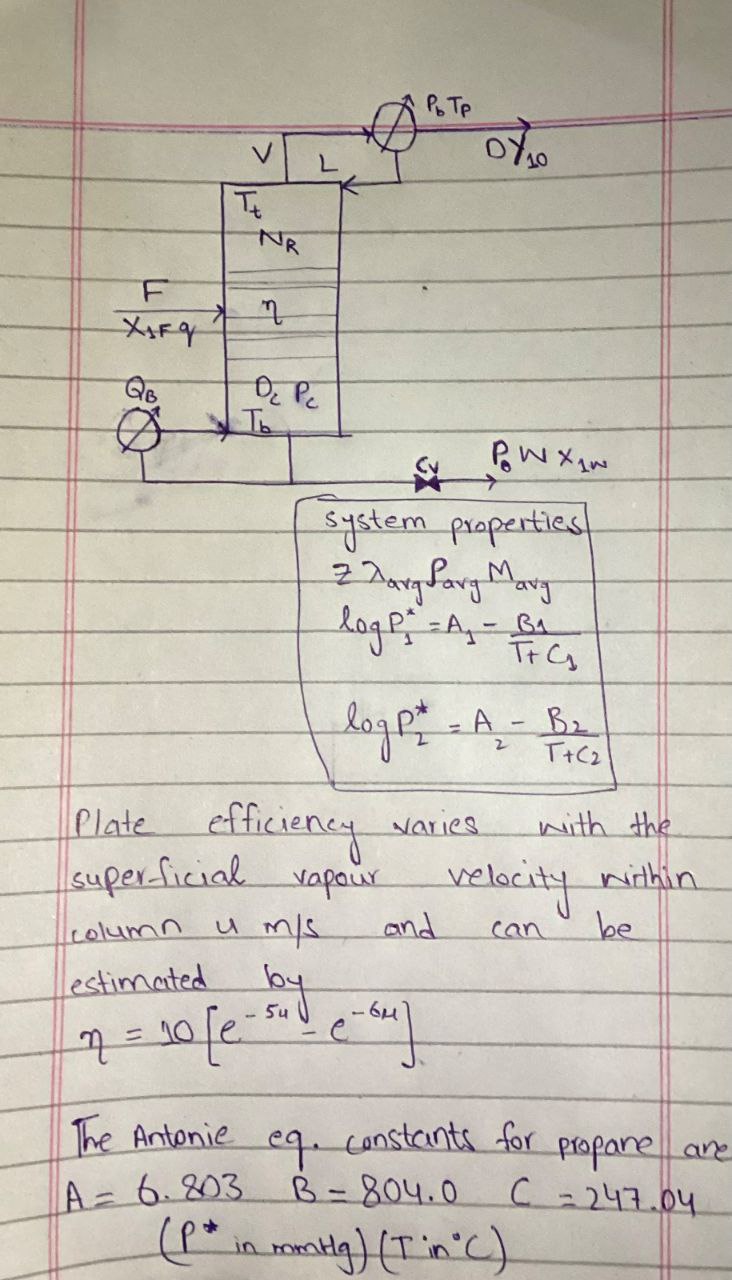 P_b T_p
V L D Y_10
T_t
N_R
F
X_1F q η
Q_B D_c P_c
T_b
C_v P_0 W X_1W
system properties
z λ_avg ρ_avg M_avg
log P_1^* = A_1 - B_1/(T + C_1)
log P_2^* = A_2 - B_2/(T + C_2)
Plate efficiency varies with the
super-ficial vapour velocity within
column u m/s and can be
estimated by
η = 10 [e^{-5u} - e^{-6u}]
The Antonie eq. constants for propane are
A = 6.803 B = 804.0 C = 247.04
(P* in mmHg) (T in °C)